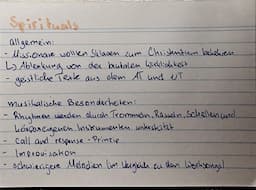 Spirituals
allgemein:
- Missionare wollen Sklaven zum Christentum bekehren
↳ Ablenkung von der brutalen Wirklichkeit
- geistliche Texte aus dem AT und NT
musikalische Besonderheiten:
- Rhythmen werden durch Trommeln, Rasseln, Schellen und
körpereigenen Instrumenten unterstützt
- call and response - Prinzip
- Improvisation
- schwierigere Melodien (im Vergleich zu den Worksongs)